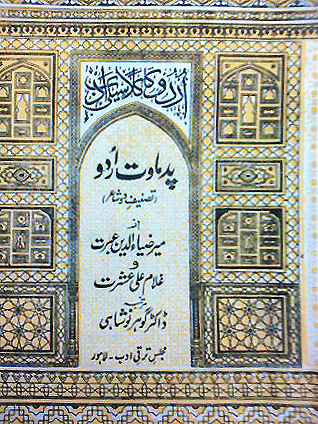 اردو کا کلاسیکی ادب
پدماوت اردو
(تصنیف دو شاعر)
از
میر ضیاء الدین عبرت
و
غلام علی عشرت
مرتبہ
ڈاکٹر گوہر نوشاہی
مجلس ترقی ادب - لاہور